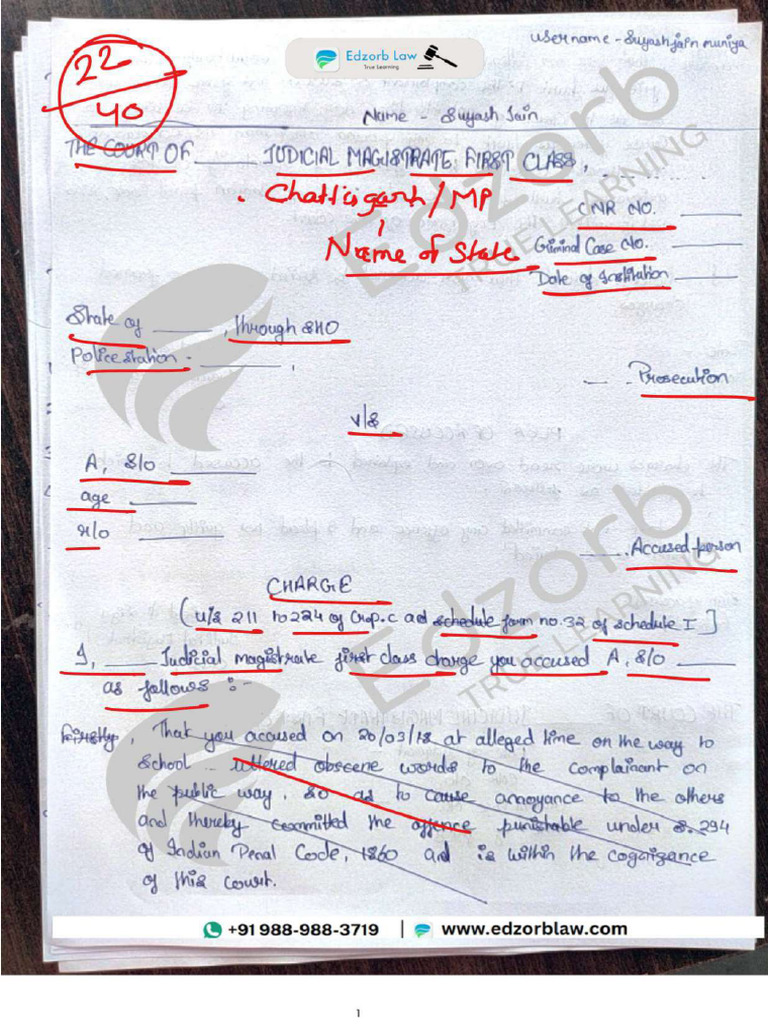 username - Suyashjain muniya
22
40
Edzorb Law
True Learning
Name - Suyash Jain
THE COURT OF ______ JUDICIAL MAGISTRATE FIRST CLASS, .........
Chattisgarh / MP
Name of State
CNR NO. ______
Criminal Case No. ______
Date of Institution ______
State of ______, through SHO
Police station - ______,
Prosecution
v/s
A, S/o ______
age ______
r/o ______
Accused person
CHARGE
(u/s 211 to 224 of Crp.c ad schedule form no. 32 of schedule I]
I, ____ Judicial magistrate first class charge you accused A, S/o ____
as follows :-
Firstly, That you accused on 20/03/18 at alleged time on the way to
School uttered obscene words to the complainant on
the public way, so as to cause annoyance to the others
and thereby committed the offence punishable under S. 294
of Indian Penal Code, 1860 and is within the cognizance
of this court.
Edzorb
TRUE LEARNING
Edzorb
TRUE LEARNING
+91 988-988-3719 | www.edzorblaw.com
1